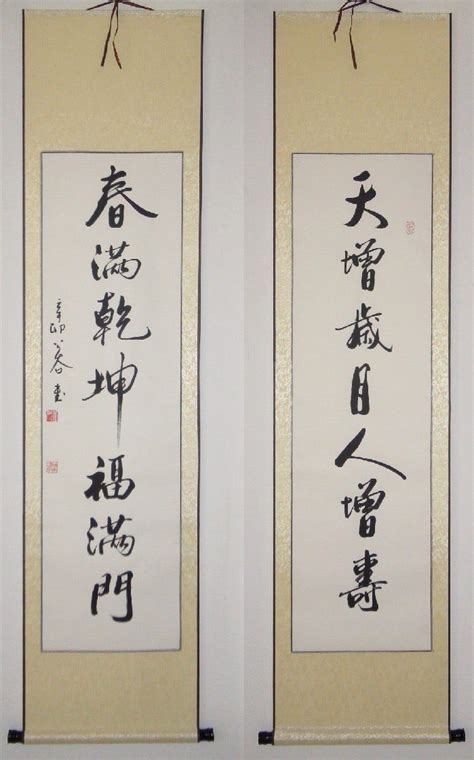 天增歲月人增壽
春滿乾坤福滿門
辛卯